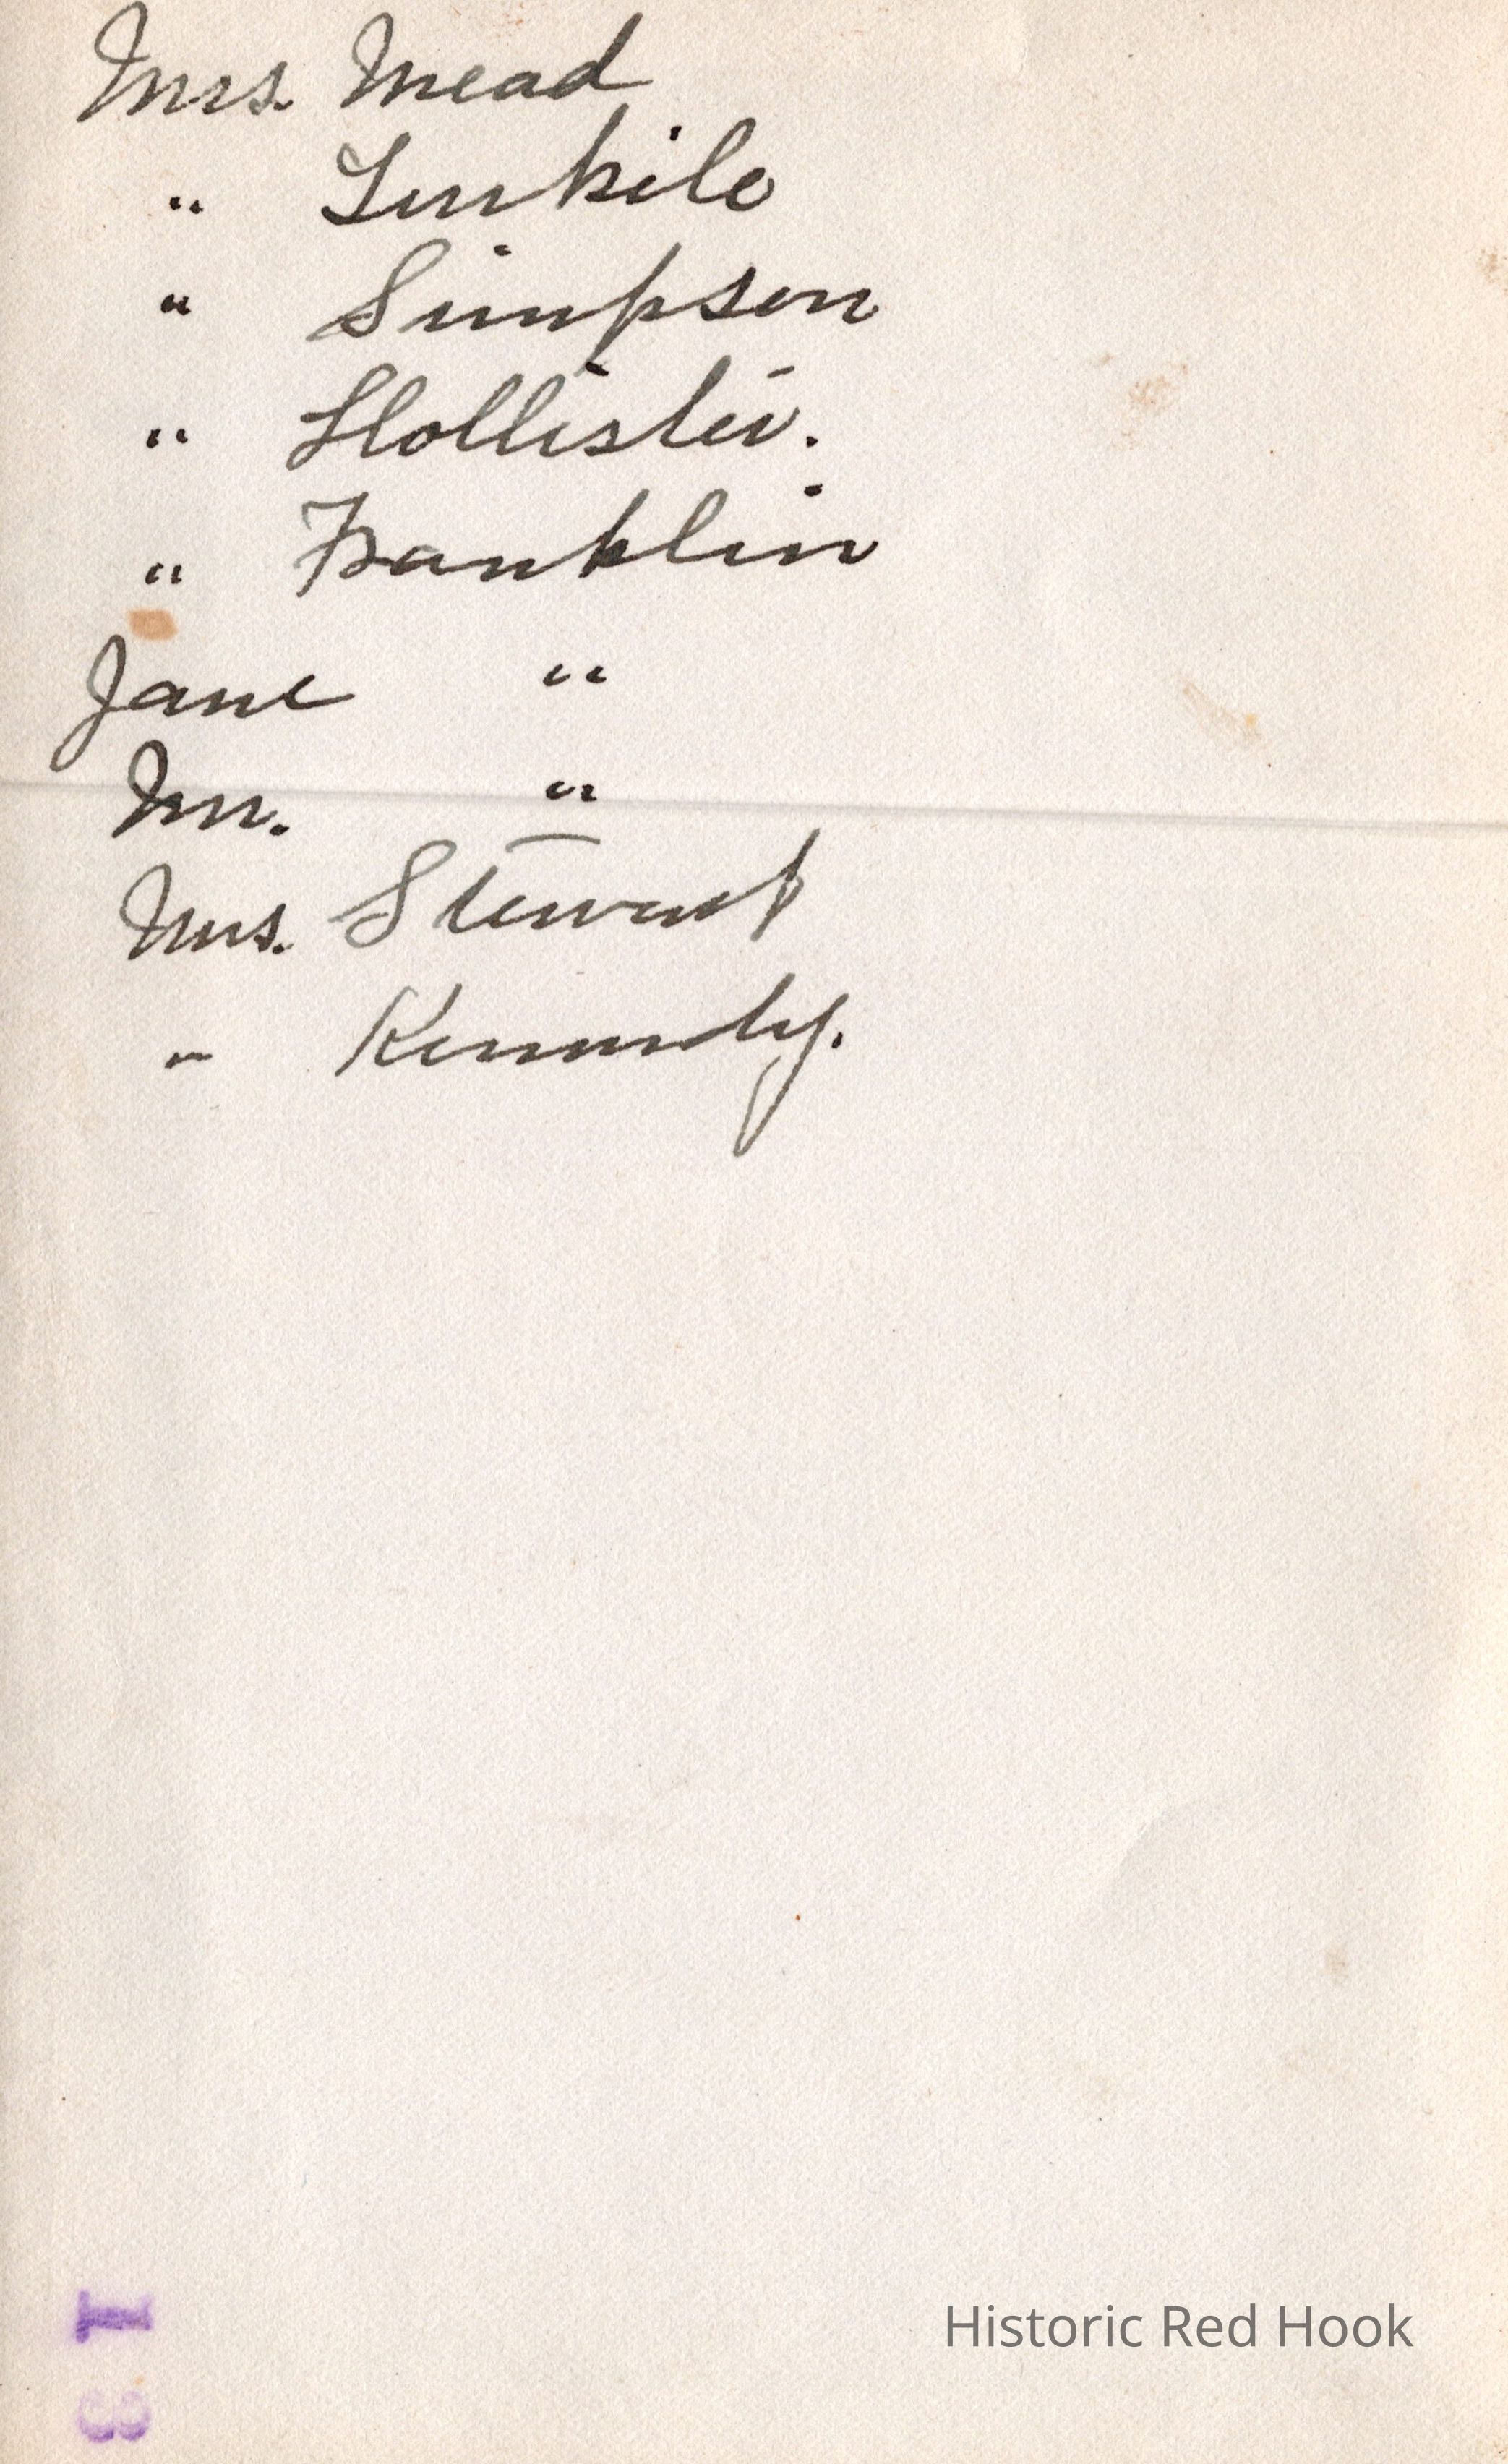 Mrs. Mead
" 
" Simpson
" Hollister.
" Franklin
Jane "
Mr. "
Mrs. Stewart
" Kennedy.
Historic Red Hook
13